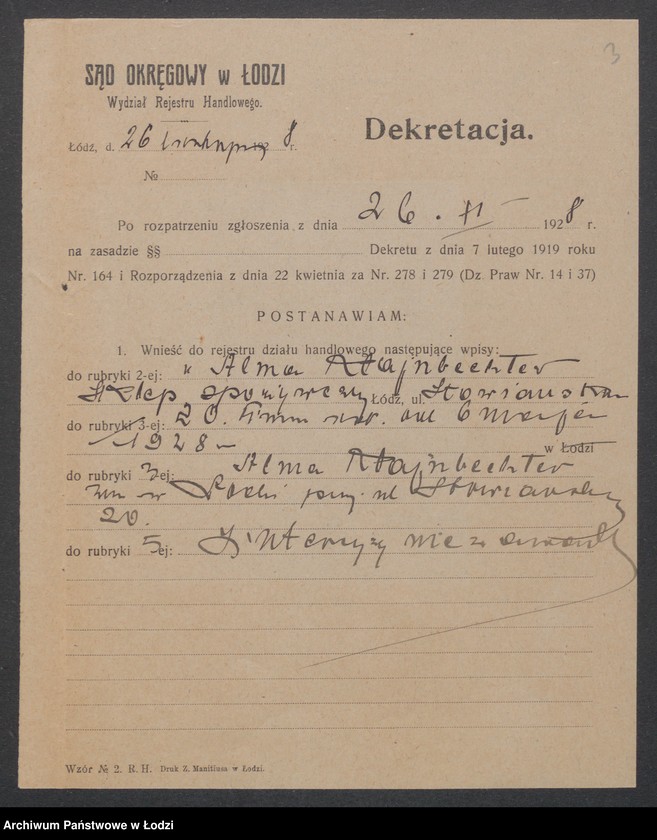 3
SĄD OKRĘGOWY w ŁODZI
Wydział Rejestru Handlowego.
Dekretacja.
Łódź, d. 26 192 8 r.
№
Po rozpatrzeniu zgłoszenia z dnia 26. XI 1928 r.
na zasadzie §§ Dekretu z dnia 7 lutego 1919 roku
Nr. 164 i Rozporządzenia z dnia 22 kwietnia za Nr. 278 i 279 (Dz. Praw Nr. 14 i 37)
POSTANAWIAM:
1. Wnieść do rejestru działu handlowego następujące wpisy:
do rubryki 2-ej: „Alma
Sklep spożywczy Łódź, ul. Słowiańska
do rubryki 3-ej: 20. od 6
1928 w Łodzi
do rubryki 3-ej: Alma
zam w Łodzi przy ul Słowiańskiej
20.
do rubryki 5ej: Intercyzy nie
Wzór № 2. R. H. Druk Z. Manitiusa w Łodzi.
Archiwum Państwowe w Łodzi